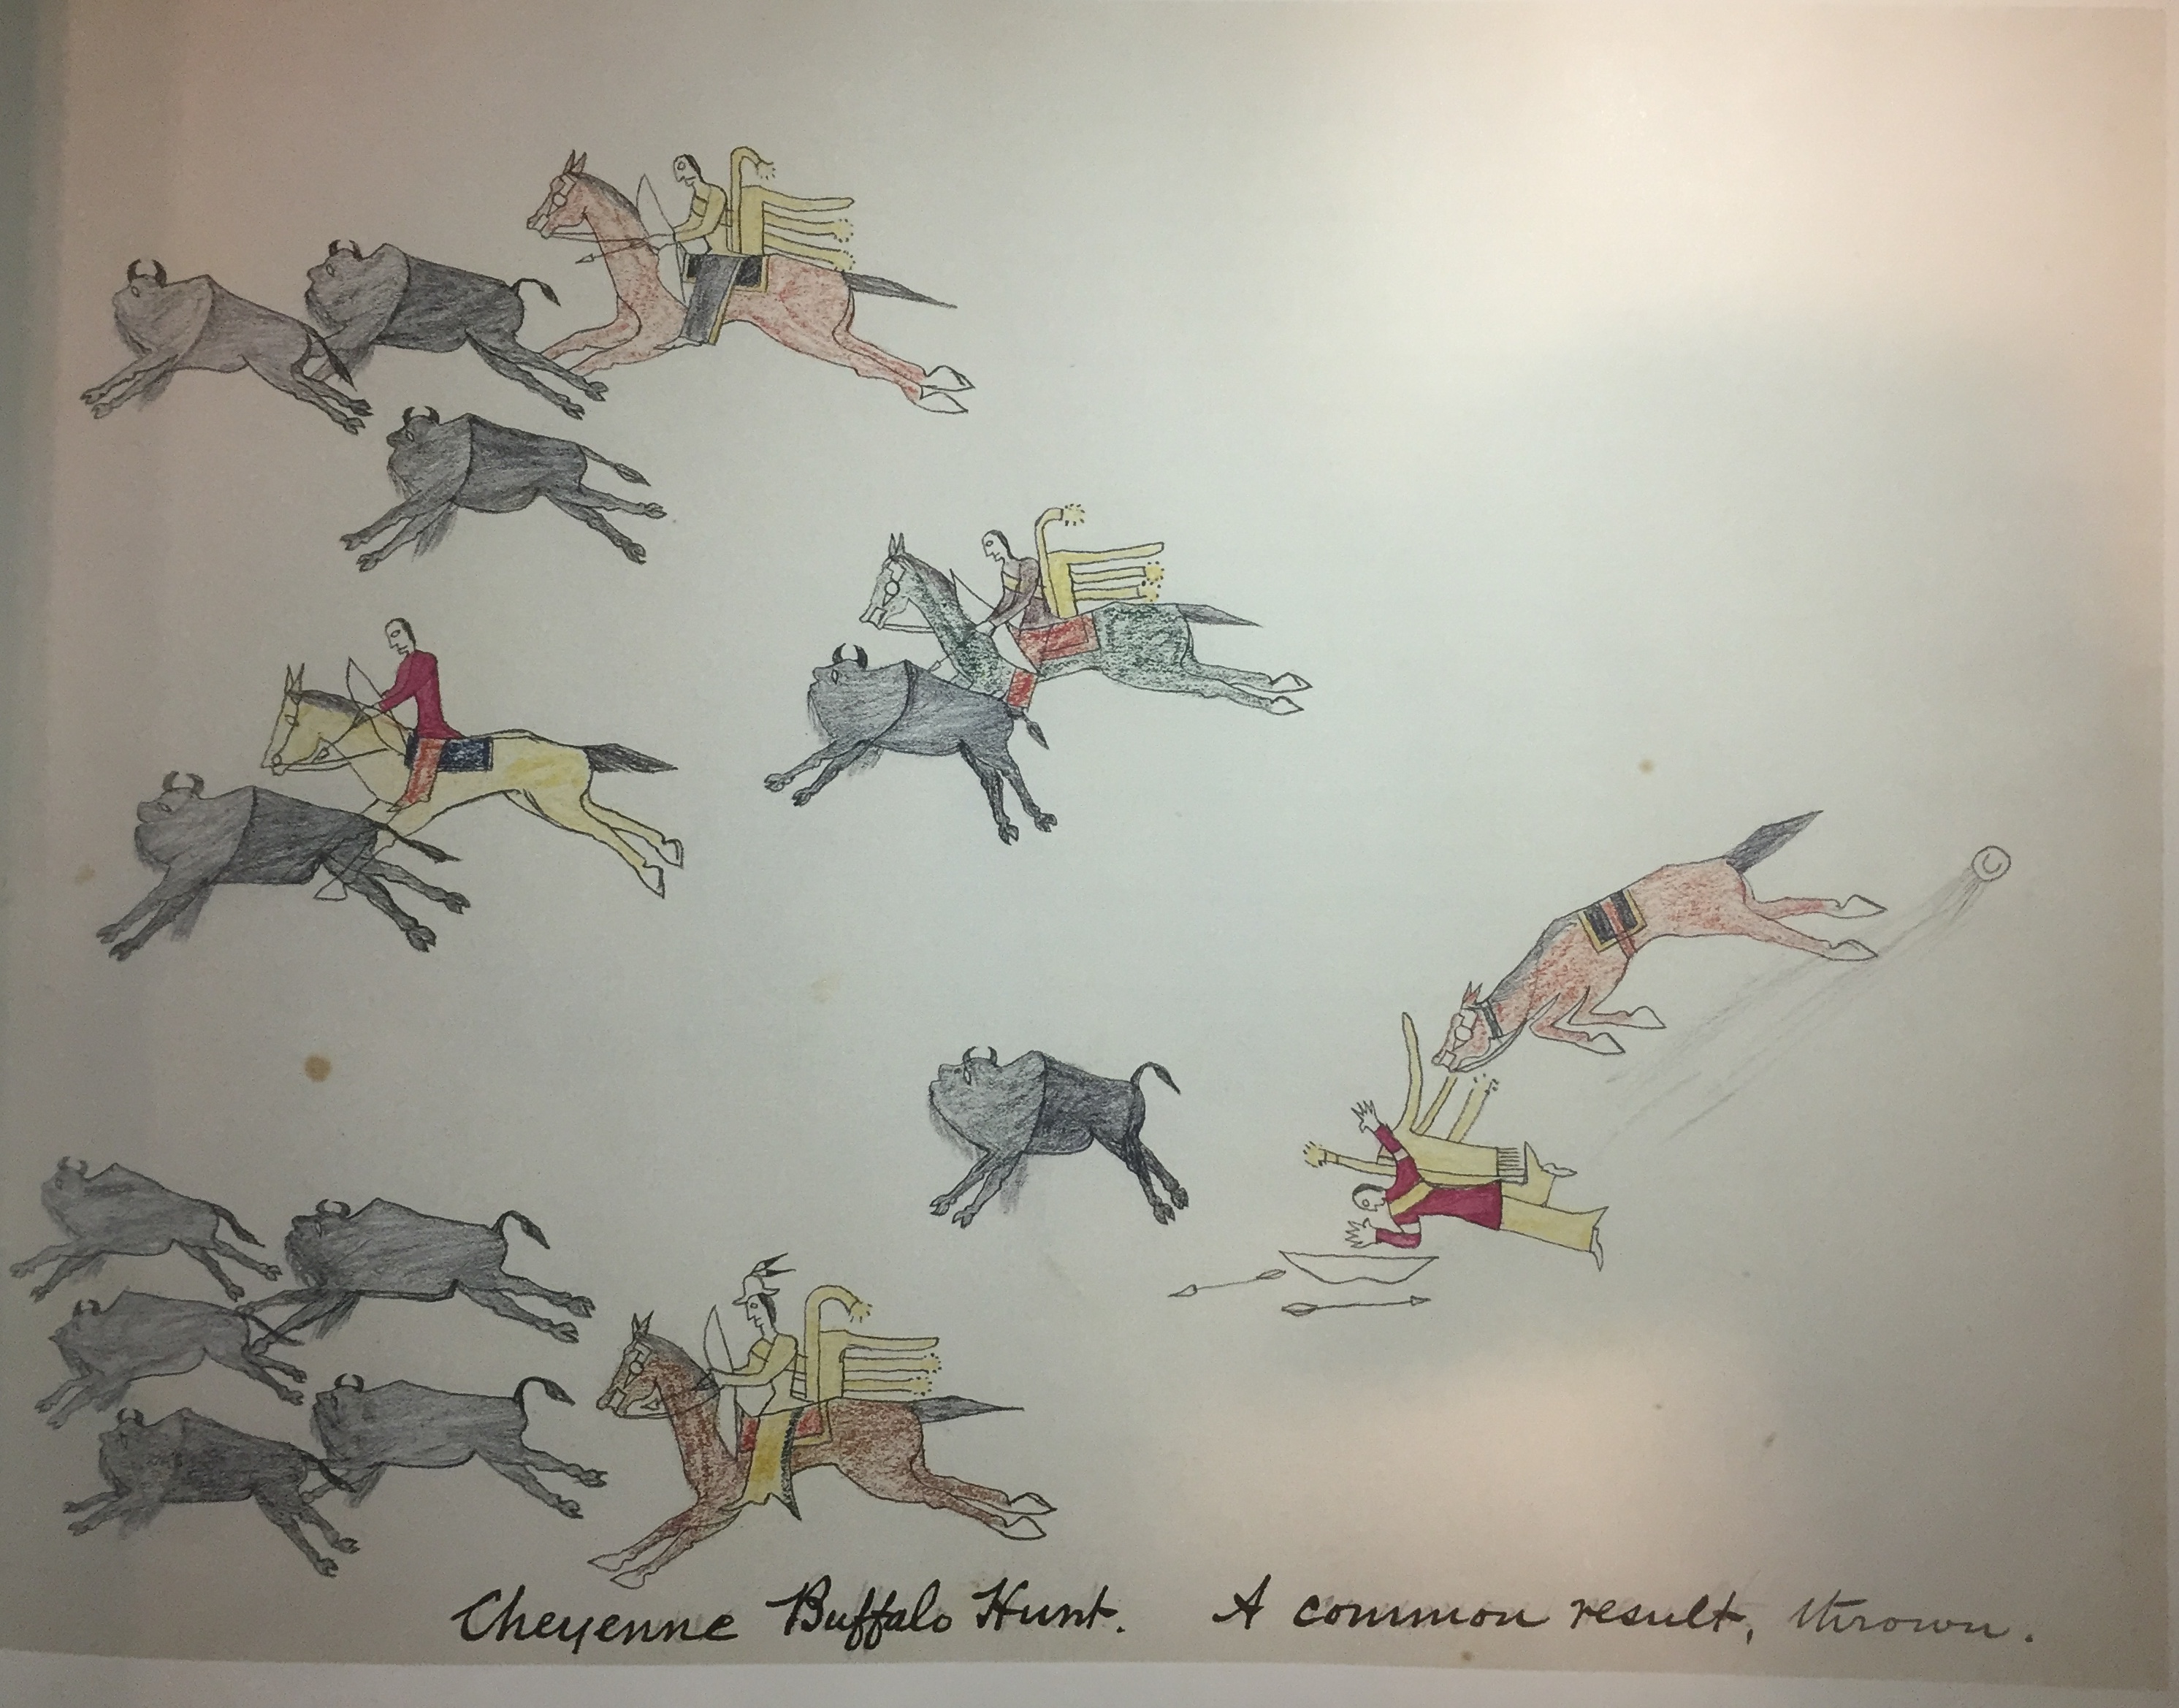 Cheyenne Buffalo Hunt. A common result, thrown.